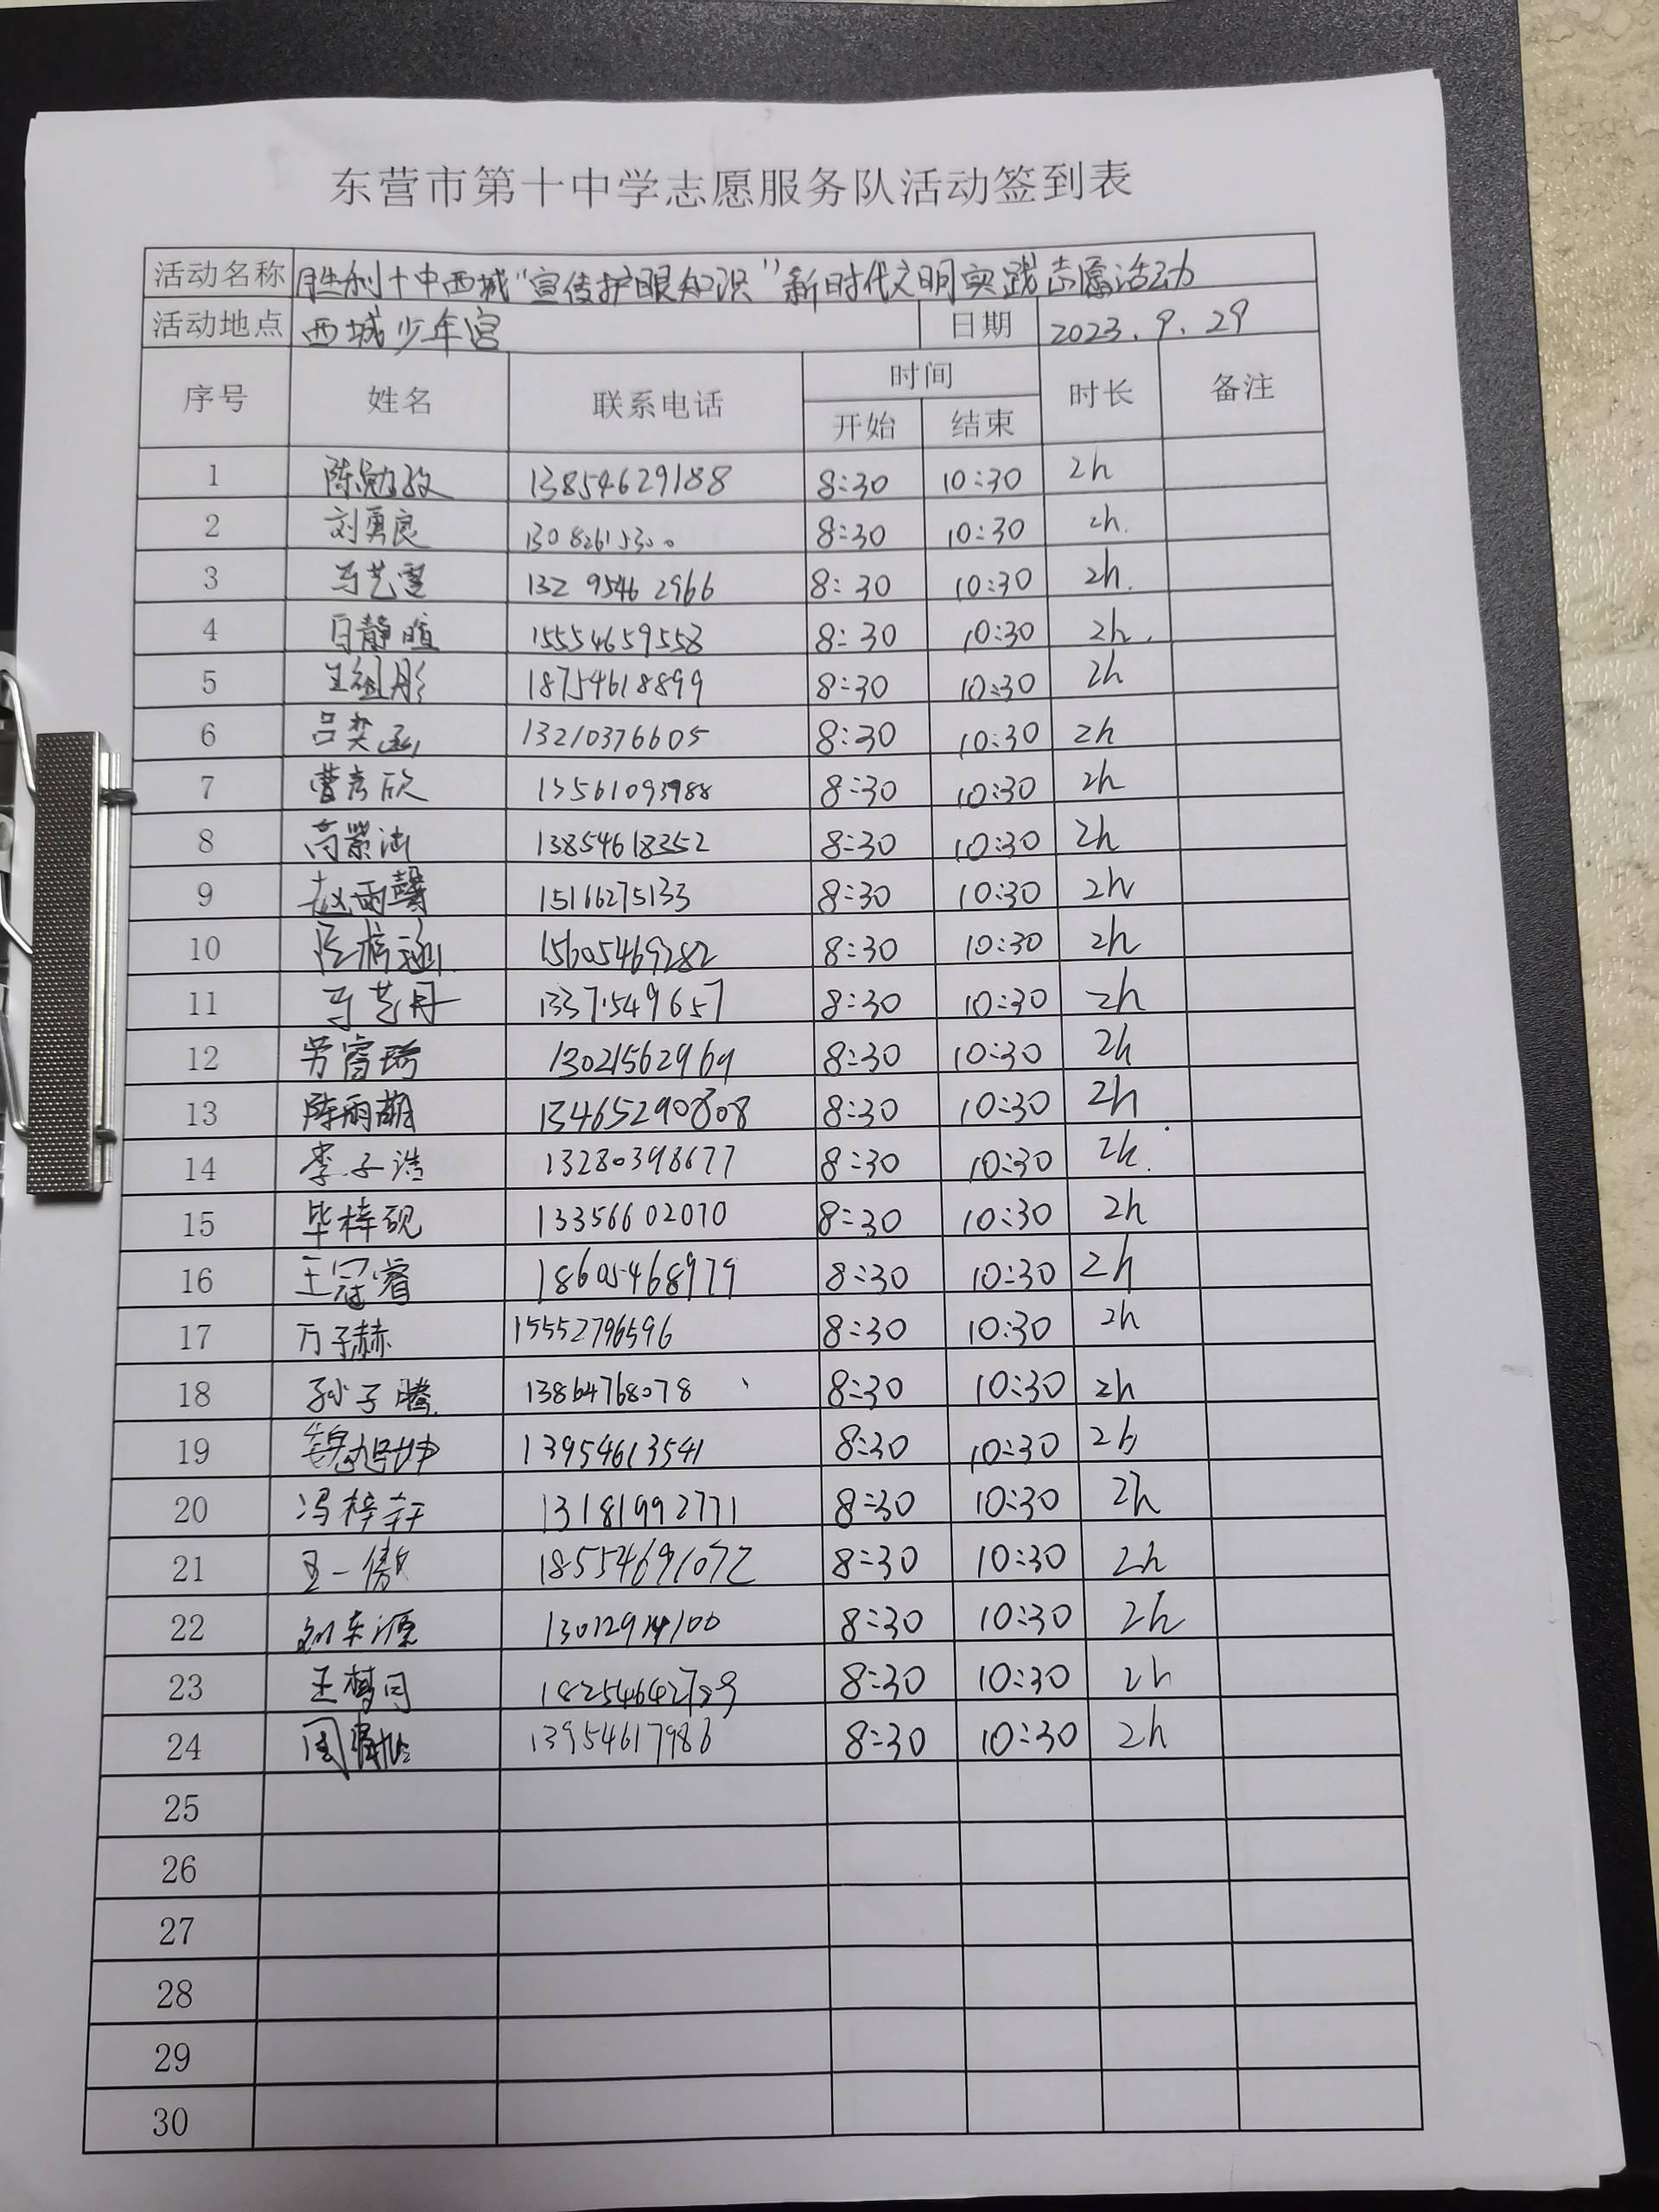 东营市第十中学志愿服务队活动签到表
活动名称 胜利十中西城“宣传护眼知识”新时代文明实践志愿活动
活动地点 西城少年宫 日期 2023.9.29
序号 姓名 联系电话 时间 时长 备注
开始 结束
1 陈勉孜 13854629188 8:30 10:30 2h
2 刘勇良 13082615300 8:30 10:30 2h.
3 马艺雪 132 9546 2966 8:30 10:30 2h.
4 白静暄 15554659558 8:30 10:30 2h.
5 王祖彤 18754618899 8:30 10:30 2h
6 吕奕函 13210376605 8:30 10:30 2h
7 曹彦欣 13561093988 8:30 10:30 2h
8 高紫涵 13854618352 8:30 10:30 2h
9 赵雨馨 15166275133 8:30 10:30 2h
10 陈梓涵 15605469282 8:30 10:30 2h
11 马艺丹 1337549657 8:30 10:30 2h
12 劳睿琦 13021562969 8:30 10:30 2h
13 陈雨萌 13465290808 8:30 10:30 2h
14 李子浩 13280398677 8:30 10:30 2h.
15 毕梓砚 13356602070 8:30 10:30 2h
16 王冠睿 18605468979 8:30 10:30 2h
17 万子赫 15552796596 8:30 10:30 2h
18 孙子腾 13864768078 8:30 10:30 2h
19 魏旭坤 13954613541 8:30 10:30 2h
20 冯梓轩 13181992771 8:30 10:30 2h
21 王一傲 18554691072 8:30 10:30 2h
22 刘东源 13012914100 8:30 10:30 2h
23 王梦冉 18254642789 8:30 10:30 2h
24 周 13954617986 8:30 10:30 2h
25
26
27
28
29
30